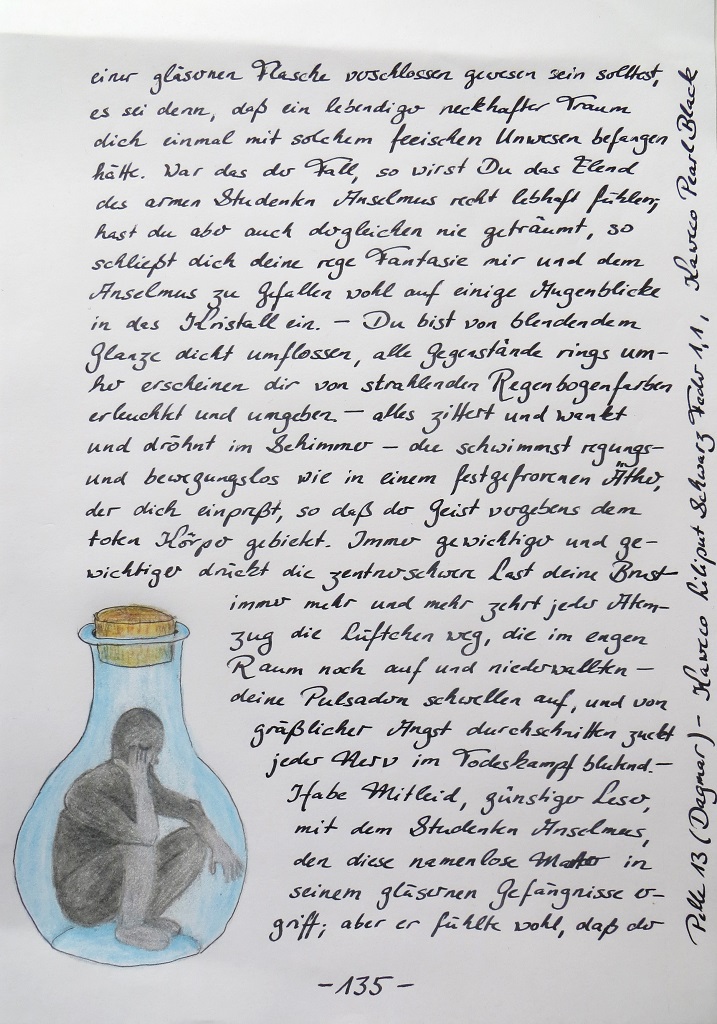 einer gläsernen Flasche verschlossen gewesen sein solltest,
es sei denn, daß ein lebendiger neckhafter Traum
dich einmal mit solchem feeischen Unwesen befangen
hätte. War das der Fall, so wirst Du das Elend
des armen Studenten Anselmus recht lebhaft fühlen;
hast du aber auch dergleichen nie geträumt, so
schließt dich deine rege Fantasie mir und dem
Anselmus zu Gefallen wohl auf einige Augenblicke
in das Kristall ein. – Du bist von blendendem
Glanze dicht umflossen, alle Gegenstände rings um-
her erscheinen dir von strahlenden Regenbogenfarben
erleuchtet und umgeben – alles zittert und wankt
und dröhnt im Schimmer – du schwimmst regungs-
und bewegungslos wie in einem festgefrorenen Äther,
der dich einpreßt, so daß der Geist vergebens dem
toten Körper gebietet. Immer gewichtiger und ge-
wichtiger drückt die zentnerschwere Last deine Brust
immer mehr und mehr zehrt jeder Atem-
zug die Lüftchen weg, die im engen
Raum noch auf und niederwallten –
deine Pulsadern schwellen auf, und von
gräßlicher Angst durchschnitten zuckt
jeder Nerv im Todeskampf blutend. –
Habe Mitleid, günstiger Leser,
mit dem Studenten Anselmus,
den diese namenlose Marter in
seinem gläsernen Gefängnisse er-
griff; aber er fühlte wohl, daß der
–135–
Pelle 13 (Dagmar) – Kaweco Liliput Schwarz Feder 1,1, Kaweco Pearl Black